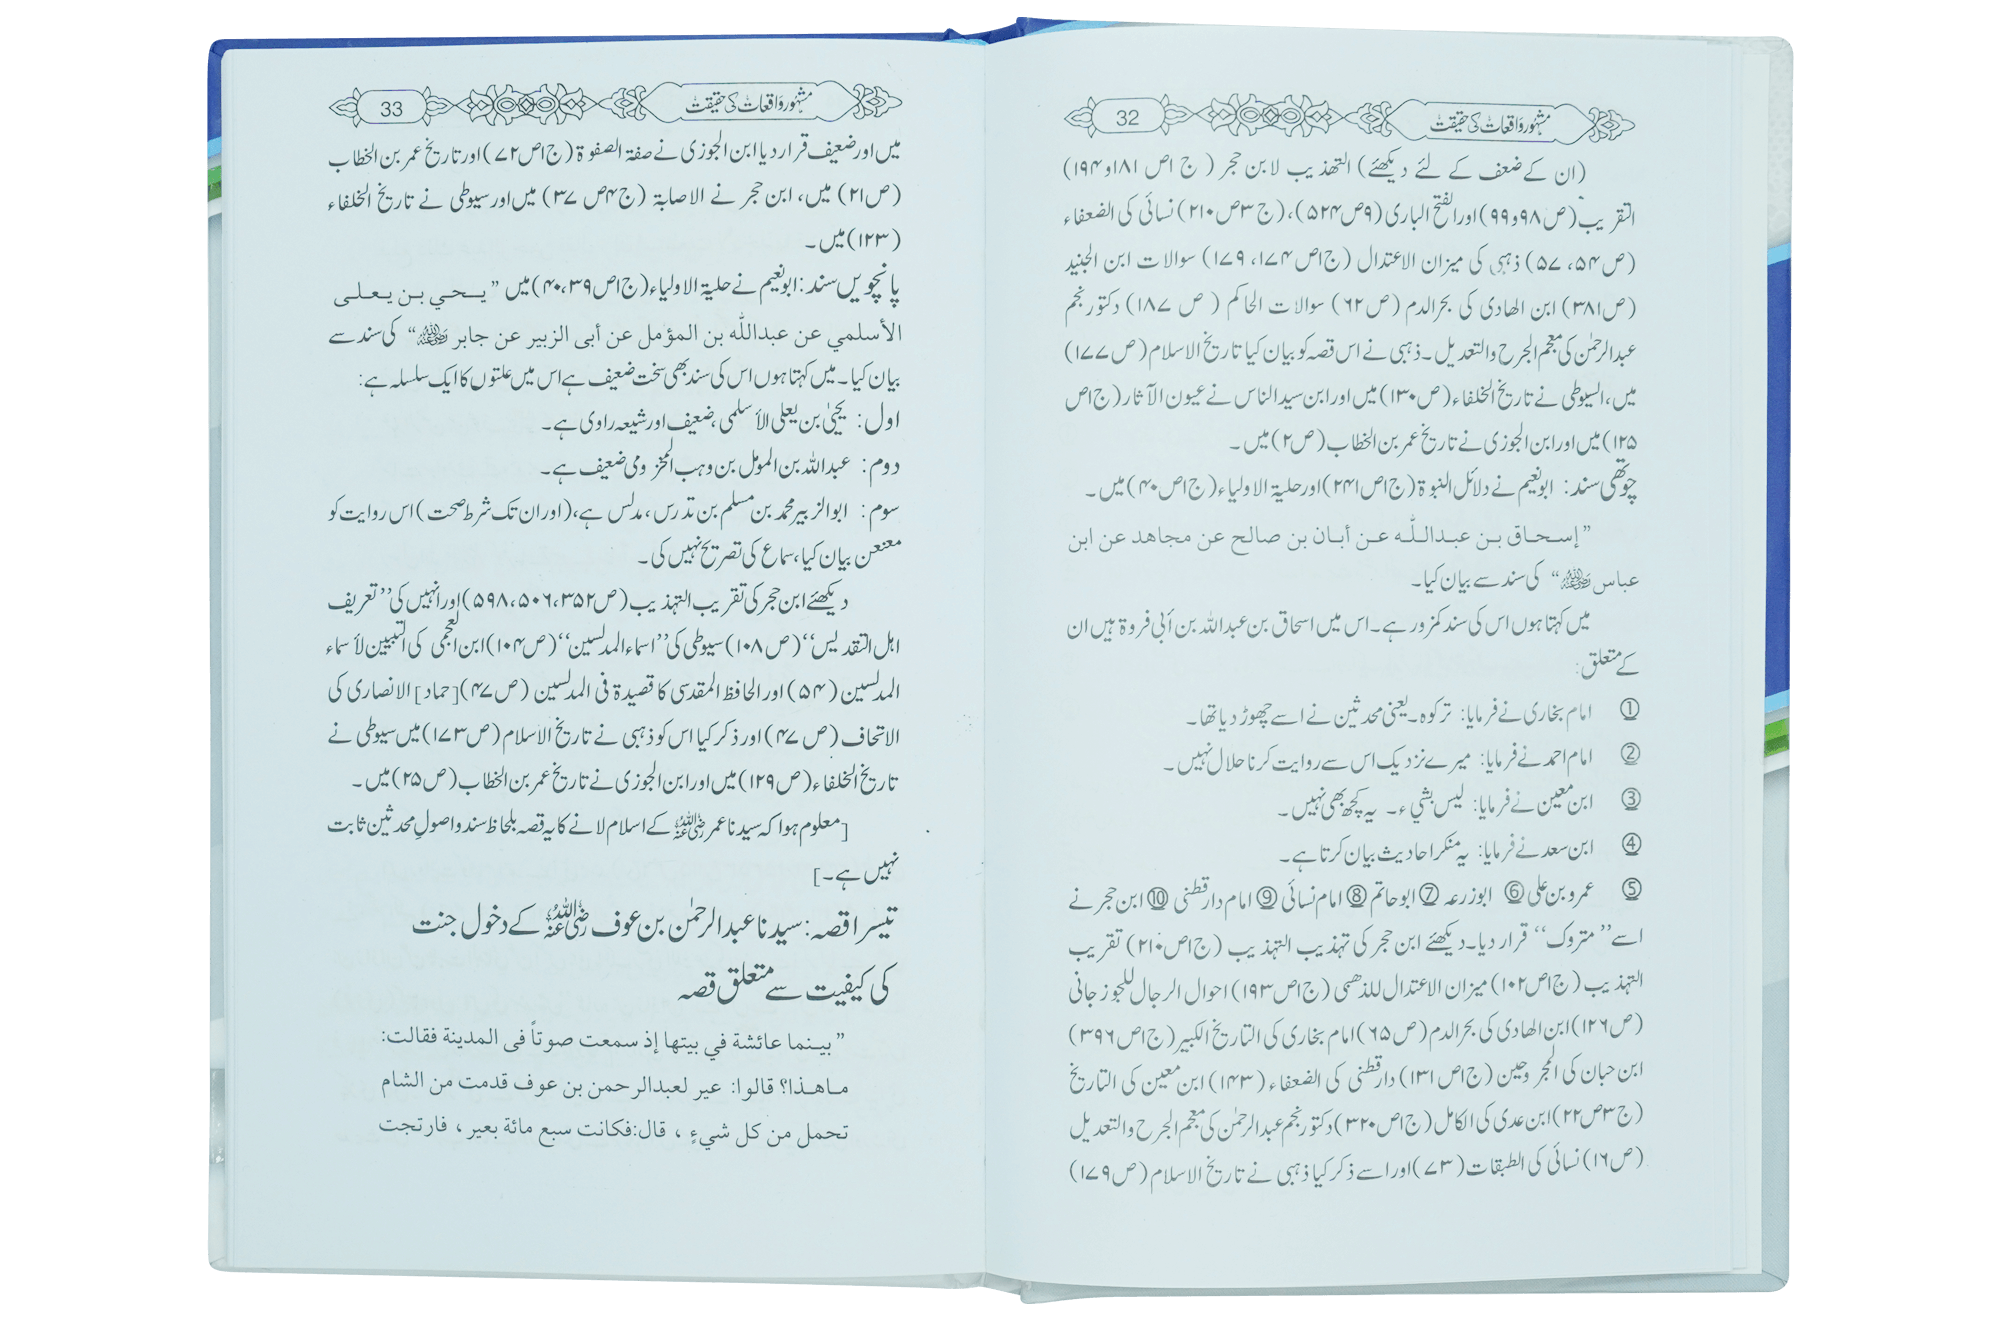 مشہور واقعات کی حقیقت 32
(ان کے ضعف کے لئے دیکھئے) التھذیب لابن حجر (ج ۱ص ۱۸۱و۱۹۴)
التقریب (ص ۹۸و۹۹) اور الفتح الباری (۹ص ۵۲۴)، (ج ۳ص ۲۱۰) نسائی کی الضعفاء
(ص ۵۴، ۵۷) ذہبی کی میزان الاعتدال (ج ۱ص ۱۷۴، ۱۷۹) سوالات ابن الجنید
(ص ۳۸۱) ابن الھادی کی بحر الدم (ص ۶۲) سوالات الحاکم (ص ۱۸۷) دکتور نجم
عبدالرحمٰن کی معجم الجرح والتعدیل۔ ذہبی نے اس قصہ کو بیان کیا تاریخ الاسلام (ص ۱۷۷)
میں، السیوطی نے تاریخ الخلفاء (ص ۱۳۰) میں اور ابن سید الناس نے عیون الآثار (ج ۱ص
۱۲۵) میں اور ابن الجوزی نے تاریخ عمر بن الخطاب (ص ۲) میں۔
چوتھی سند: ابو نعیم نے دلائل النبوۃ (ج ۱ص ۲۴۱) اور حلیۃ الاولیاء (ج ۱ص ۴۰) میں۔
”إسحاق بن عبداللّٰه عن أبان بن صالح عن مجاهد عن ابن
عباس رضی اللہ عنہ“ کی سند سے بیان کیا۔
میں کہتا ہوں اس کی سند کمزور ہے۔ اس میں اسحاق بن عبداللہ بن أبی فروۃ ہیں ان
کے متعلق:
① امام بخاری نے فرمایا: ترکوہ۔ یعنی محدثین نے اسے چھوڑ دیا تھا۔
② امام احمد نے فرمایا: میرے نزدیک اس سے روایت کرنا حلال نہیں۔
③ ابن معین نے فرمایا: لیس بشيء۔ یہ کچھ بھی نہیں۔
④ ابن سعد نے فرمایا: یہ منکر احادیث بیان کرتا ہے۔
⑤ عمرو بن علی ⑥ ابو زرعہ ⑦ ابو حاتم ⑧ امام نسائی ⑨ امام دارقطنی ⑩ ابن حجر نے
اسے ”متروک“ قرار دیا۔ دیکھئے ابن حجر کی تہذیب التہذیب (ج ۱ص ۲۱۰) تقریب
التہذیب (ج ۱ص ۱۰۲) میزان الاعتدال للذھبی (ج ۱ص ۱۹۳) احوال الرجال للجوزجانی
(ص ۱۲۶) ابن الھادی کی بحر الدم (ص ۶۵) امام بخاری کی التاریخ الکبیر (ج ۱ص ۳۹۶)
ابن حبان کی المجروحین (ج ۱ص ۱۳۱) دارقطنی کی الضعفاء (۱۴۳) ابن معین کی التاریخ
(ج ۳ص ۲۲) ابن عدی کی الکامل (ج ۱ص ۳۲۰) دکتور نجم عبدالرحمٰن کی معجم الجرح والتعدیل
(ص ۱۶) نسائی کی الطبقات (۷۳) اور اسے ذکر کیا ذہبی نے تاریخ الاسلام (ص ۱۷۹)
مشہور واقعات کی حقیقت 33
میں اور ضعیف قرار دیا ابن الجوزی نے صفۃ الصفوۃ (ج ۱ص ۷۲) اور تاریخ عمر بن الخطاب
(ص ۲۱) میں، ابن حجر نے الاصابۃ (ج ۴ص ۳۷) میں اور سیوطی نے تاریخ الخلفاء
(۱۲۳) میں۔
پانچویں سند: ابو نعیم نے حلیۃ الاولیاء (ج ۱ص ۳۹، ۴۰) میں ”یحي بن یعلی
الأسلمي عن عبداللّٰه بن المؤمل عن أبی الزبیر عن جابر رضی اللہ عنہ“ کی سند سے
بیان کیا۔ میں کہتا ہوں اس کی سند بھی سخت ضعیف ہے اس میں علتوں کا ایک سلسلہ ہے:
اول: یحییٰ بن یعلی الأسلمی، ضعیف اور شیعہ راوی ہے۔
دوم: عبداللہ بن المومل بن وہب المخزومی ضعیف ہے۔
سوم: ابوالزبیر محمد بن مسلم بن تدرس، مدلس ہے، (اور ان تک شرط صحت) اس روایت کو
معنعن بیان کیا، سماع کی تصریح نہیں کی۔
دیکھئے ابن حجر کی تقریب التہذیب (ص ۳۵۲، ۵۰۶، ۵۹۸) اور انہیں کی ”تعریف
اہل التقدیس“ (ص ۱۰۸) سیوطی کی ”اسماء المدلسین“ (ص ۱۰۴) ابن العجمی کی التبیین لأسماء
المدلسین (۵۴) اور الحافظ المقدسی کا قصیدۃ فی المدلسین (ص ۴۷) [حماد] الانصاری کی
الاتحاف (ص ۴۷) اور ذکر کیا اس کو ذہبی نے تاریخ الاسلام (ص ۱۷۳) میں سیوطی نے
تاریخ الخلفاء (ص ۱۲۹) میں اور ابن الجوزی نے تاریخ عمر بن الخطاب (ص ۲۵) میں۔
[معلوم ہوا کہ سیدنا عمر رضی اللہ عنہ کے اسلام لانے کا یہ قصہ بلحاظ سند و اصولِ محدثین ثابت
نہیں ہے۔]
تیسرا قصہ: سیدنا عبدالرحمٰن بن عوف رضی اللہ عنہ کے دخول جنت
کی کیفیت سے متعلق قصہ
”بینما عائشة في بیتها إذ سمعت صوتاً فی المدینة فقالت:
ماهذا؟ قالوا: عیر لعبدالرحمن بن عوف قدمت من الشام
تحمل من کل شيءٍ ، قال: فکانت سبع مائة بعیر ، فارتجت